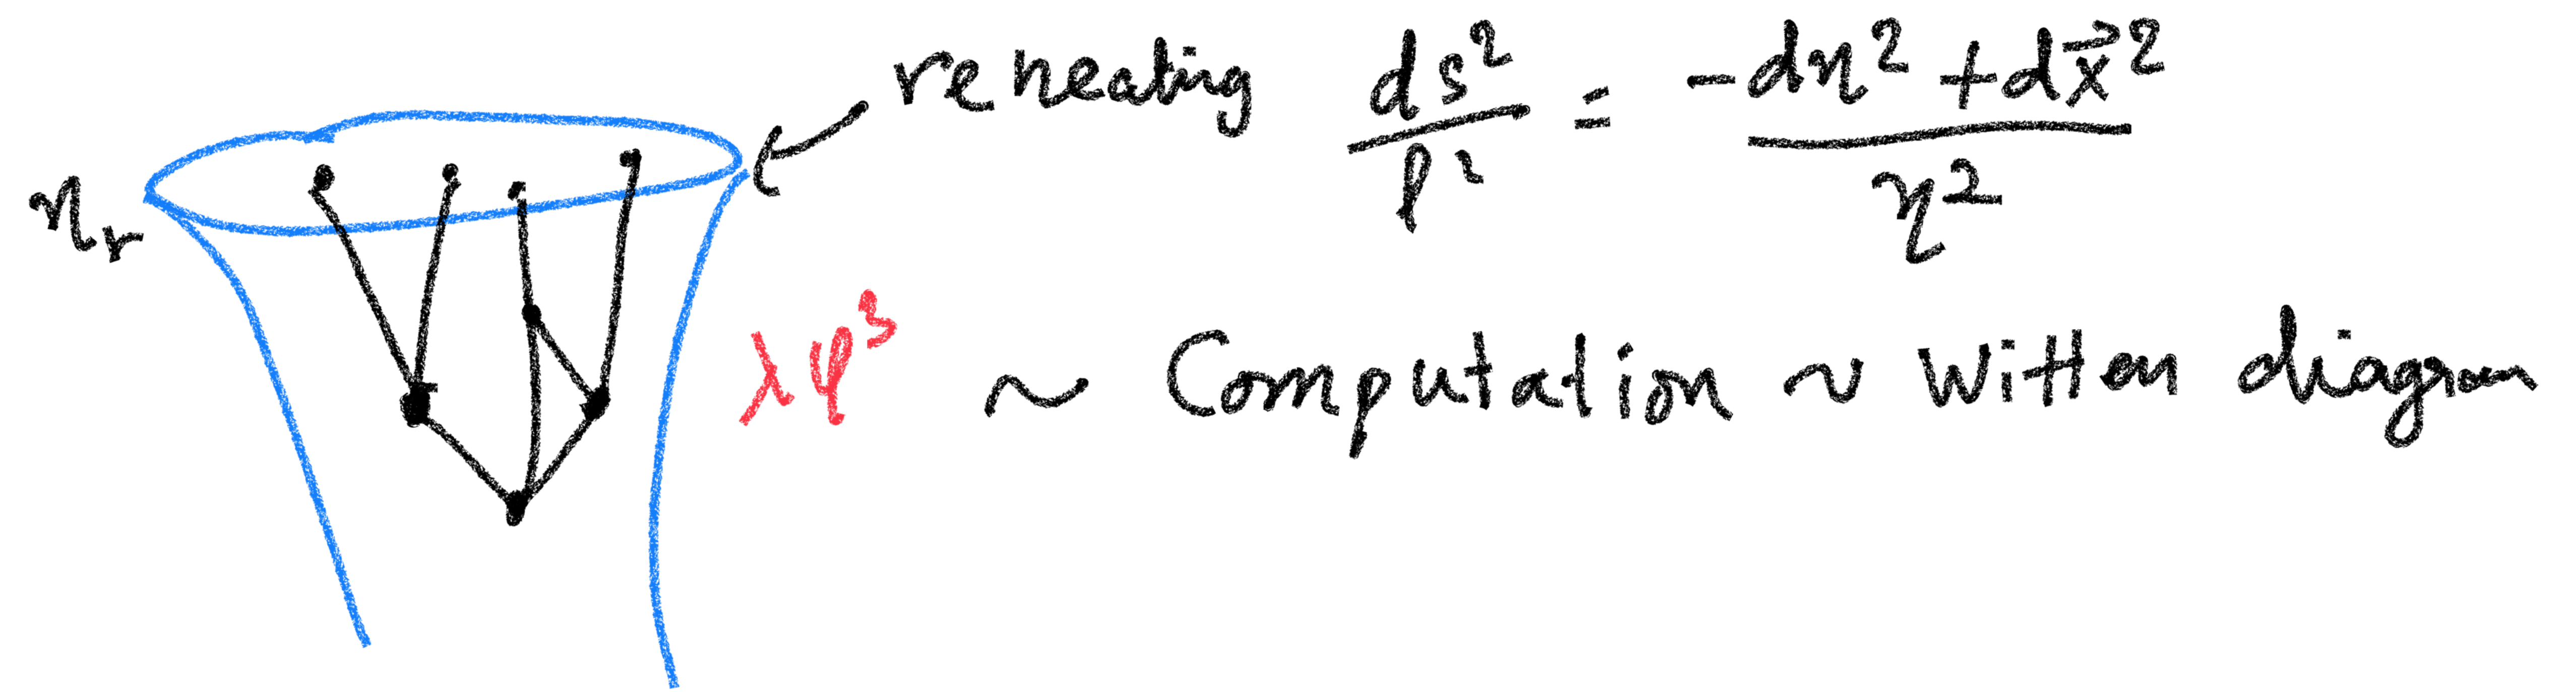 reheating ds²/l² = (-dη² + dx⃗²)/η²
η_r
λφ³ ~ Computation ~ Witten diagram